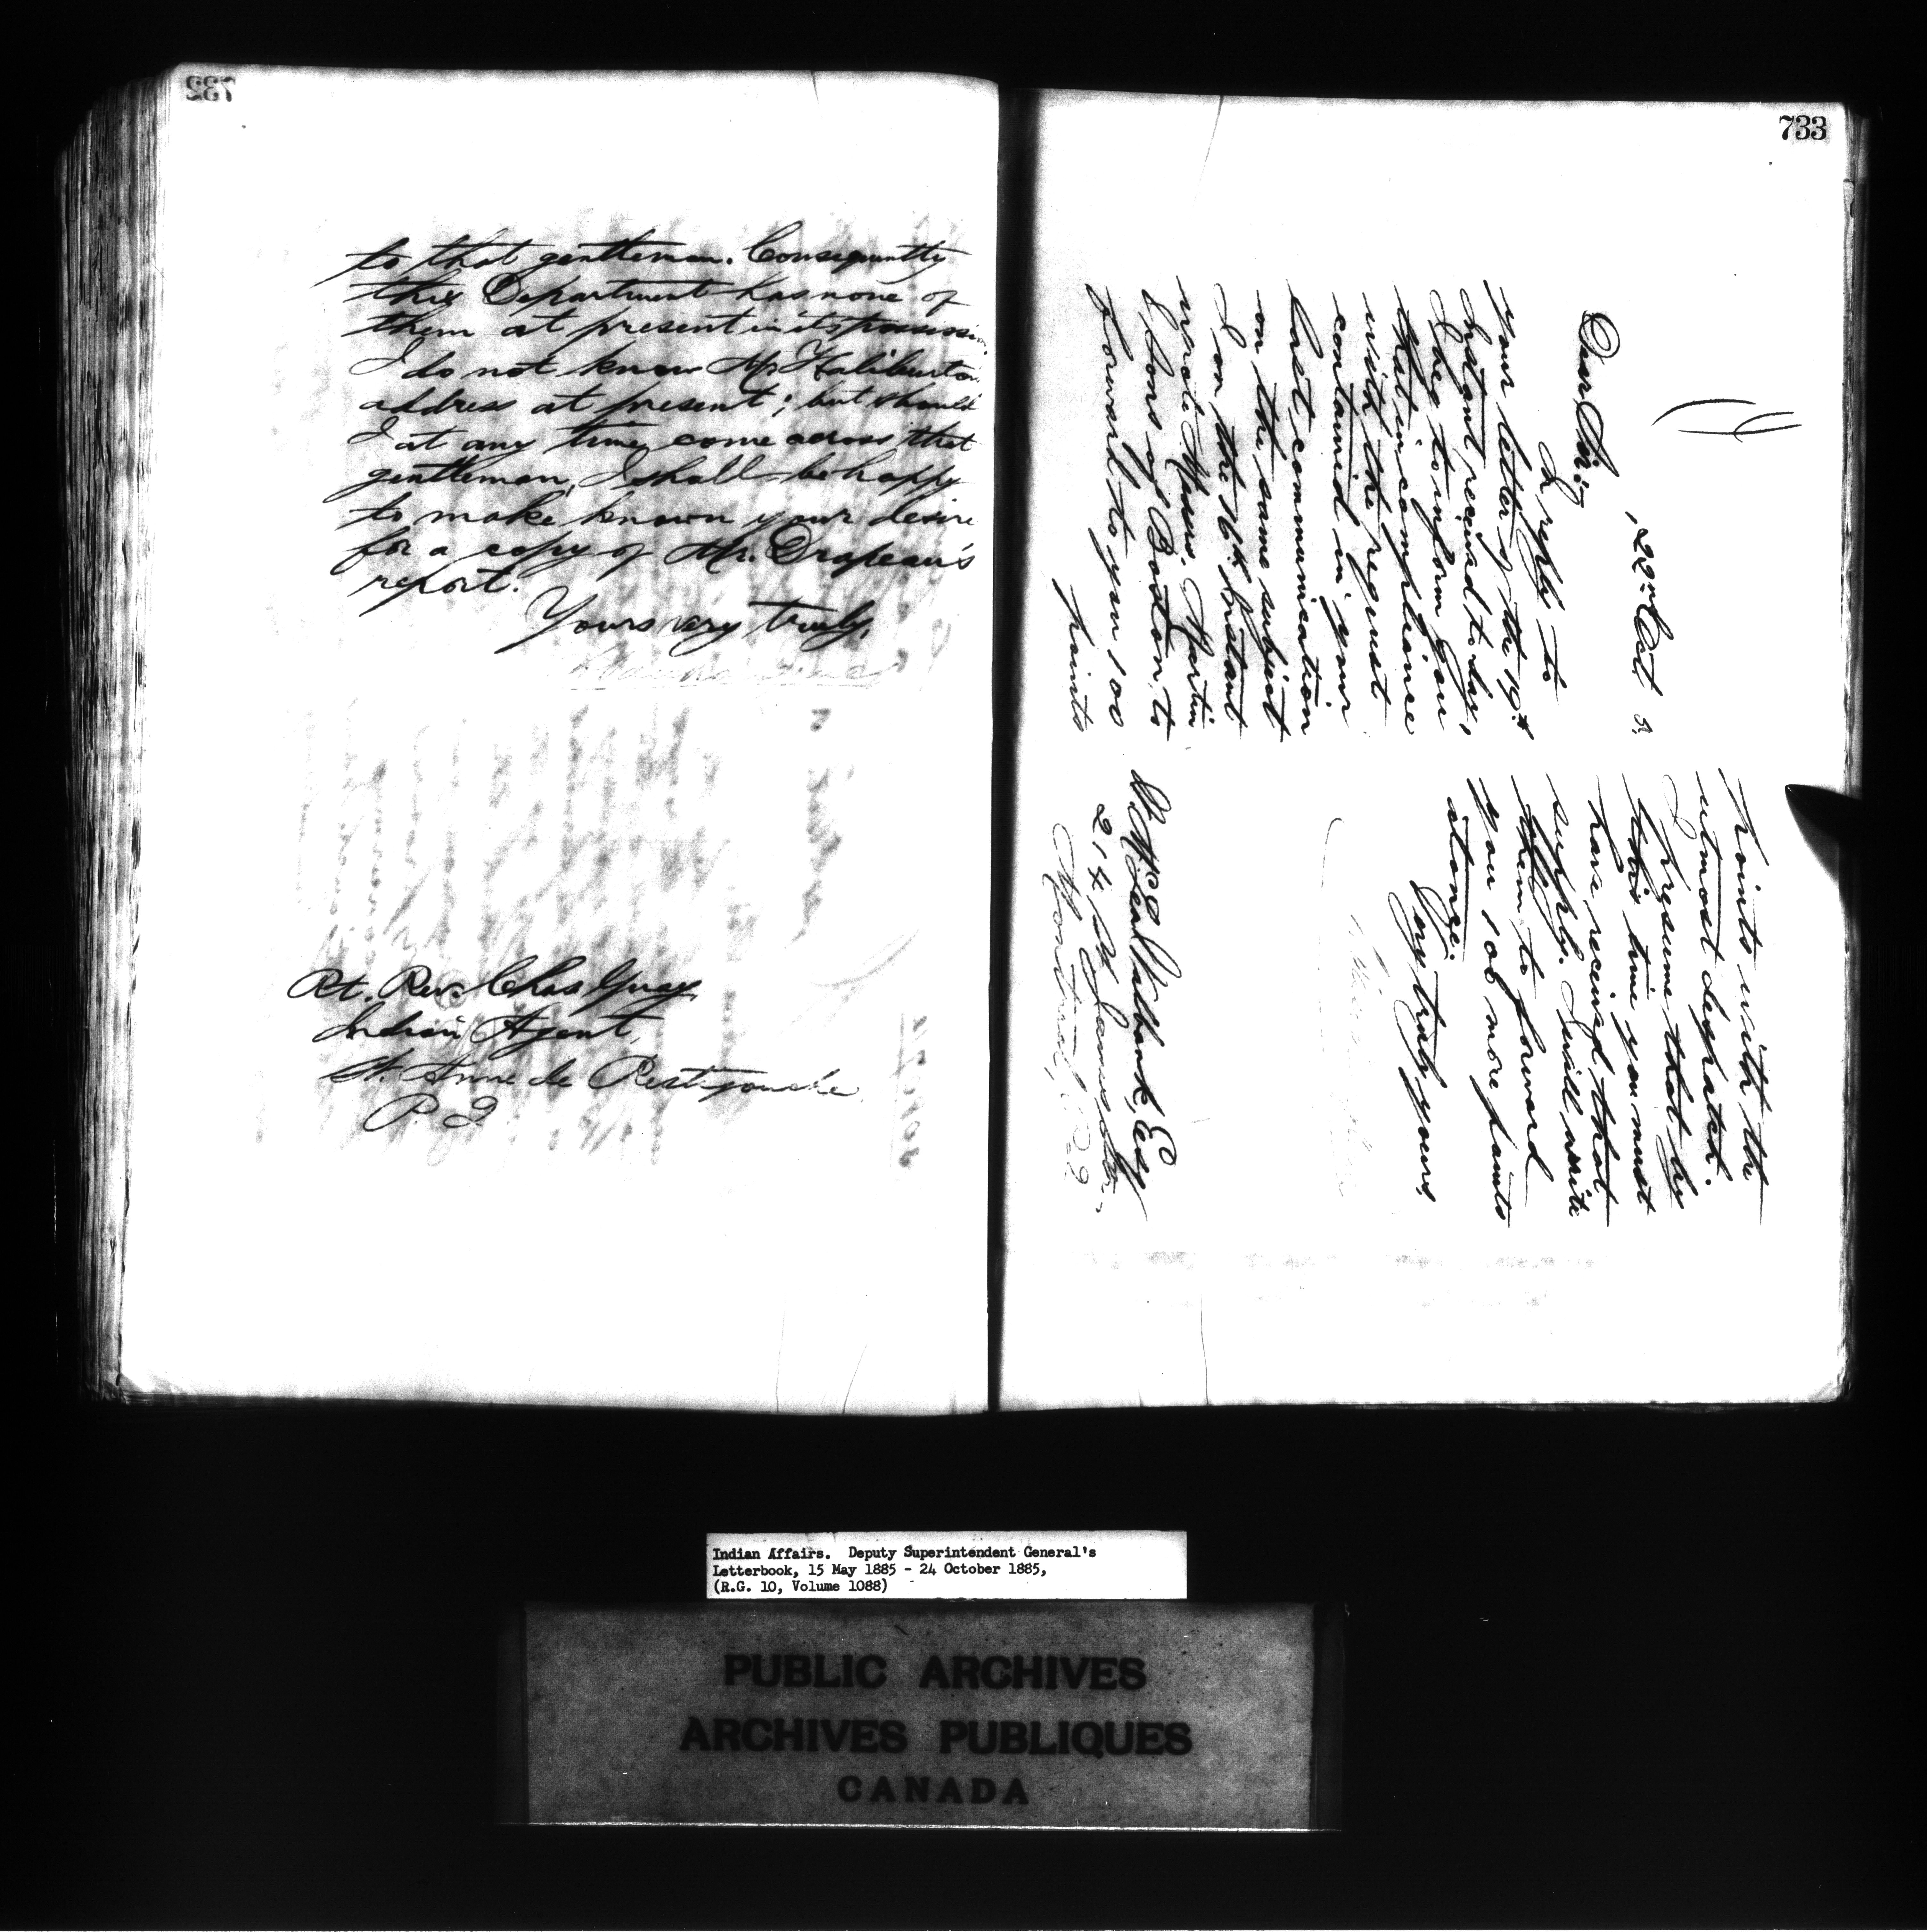 732
to that gentleman. Consequently
this Department has none of
them at present in its possessi
I do not know Mr Haliburton
address at present; but should
I at any time, come across that
gentleman, I shall be happy
to make known your desire
for a copy of Mr. Drapeau's
report.
Yours very truly,
Rt. Rev. Chas Guay
Indian Agent,
St. Anne de Restigouche
P. Q
733
22nd Oct 5,
Dear Sir,
In reply to
your letter of the 19th
Instant, received to day,
I beg to inform you
that in compliance
with the request
contained in your
last communication
on the same subject
I on the 16th Instant
wrote Messrs. Martin
& Sons of Boston to
forward to you 100
points
points with the
utmost despatch.
I presume that by
this time you must
have received that
supply. I will write
them to forward
you 100 more points
at once.
Very truly yours,
W. McLea Walbank, Esq
214 St James Str.,
Montreal, P.Q.
Indian Affairs. Deputy Superintendent General's
Letterbook, 15 May 1885 - 24 October 1885,
(R.G. 10, Volume 1088)
PUBLIC ARCHIVES
ARCHIVES PUBLIQUES
CANADA